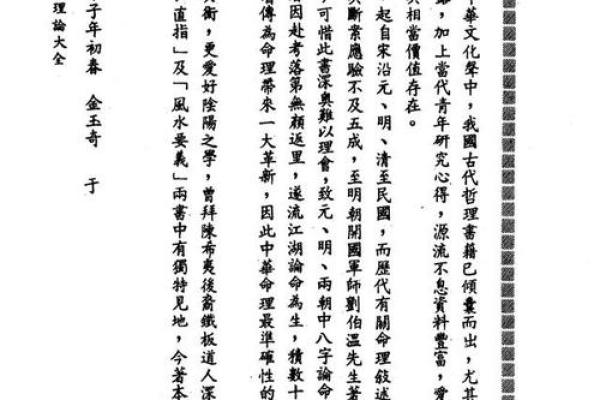 中華文化聲中，我國古代哲理書籍已傾囊而出，尤其
，加上當代青年研究心得，源流不息資料豐富，愛
相當價值存在。
起自宋沿元、明、清至民國，而歷代有關命理敘述
斷案應驗不及五成，至明朝開國軍師劉伯溫先生著
，可惜此書深奧難以理會，致元、明、兩朝中八字論命
者因赴考落第無顏返里，遂流江湖論命為生，積數十
傳為命理帶來一大革新，因此中華命理最準確性的
衡，更愛好陰陽之學，曾拜陳希夷後裔鐵板道人深
直指」及「風水要義」兩書中有獨特見地，今著本
子年初春 金玉奇 于
理論大全